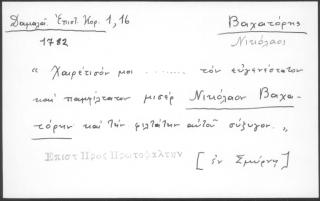 Δαμαλά. Ἐπιστ. Κορ. 1, 16
Βαχατόρης
Νικόλαος
1782
" Χαιρέτισόν μοι ........ τὸν εὐγενέστατον
καὶ παμφίλτατον μισὲρ Νικόλαον Βαχα-
τόρην καὶ τὴν φιλτάτην αὐτοῦ σύζυγον. "
Ἐπιστ Πρὸς Πρωτοψάλτην
[ἐν Σμύρνῃ]